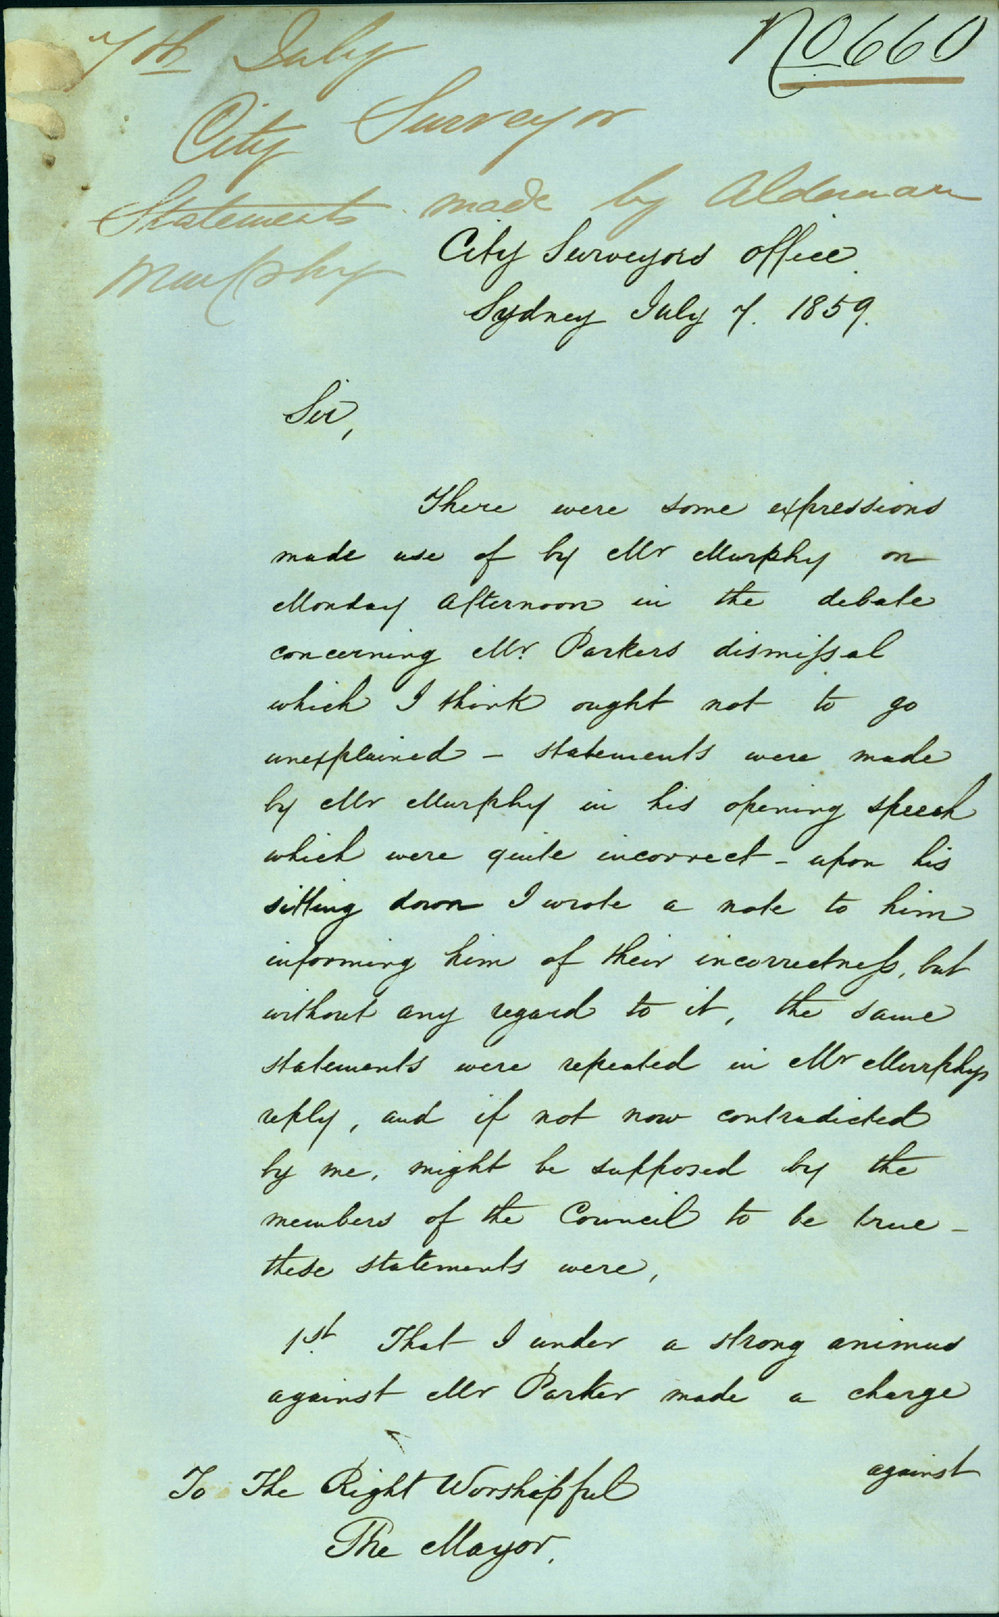 No 660
7th July
City Surveyor
Statements made by Alderman
Murphy
City Surveyors office
Sydney July 7. 1859.
Sir,
There were some expressions
made use of by Mr Murphy on
Monday afternoon in the debate
concerning Mr. Parkers dismissal
which I think ought not to go
unexplained - statements were made
by Mr Murphy in his opening speech
which were quite incorrect - upon his
sitting down I wrote a note to him
informing him of their incorrectness, but
without any regard to it, the same
statements were repeated in Mr Murphys
reply, and if not now contradicted
by me, might be supposed by the
members of the Council to be true -
these statements were,
1st. That I under a strong animus
against Mr Parker made a charge
against
To The Right Worshipful
The Mayor.